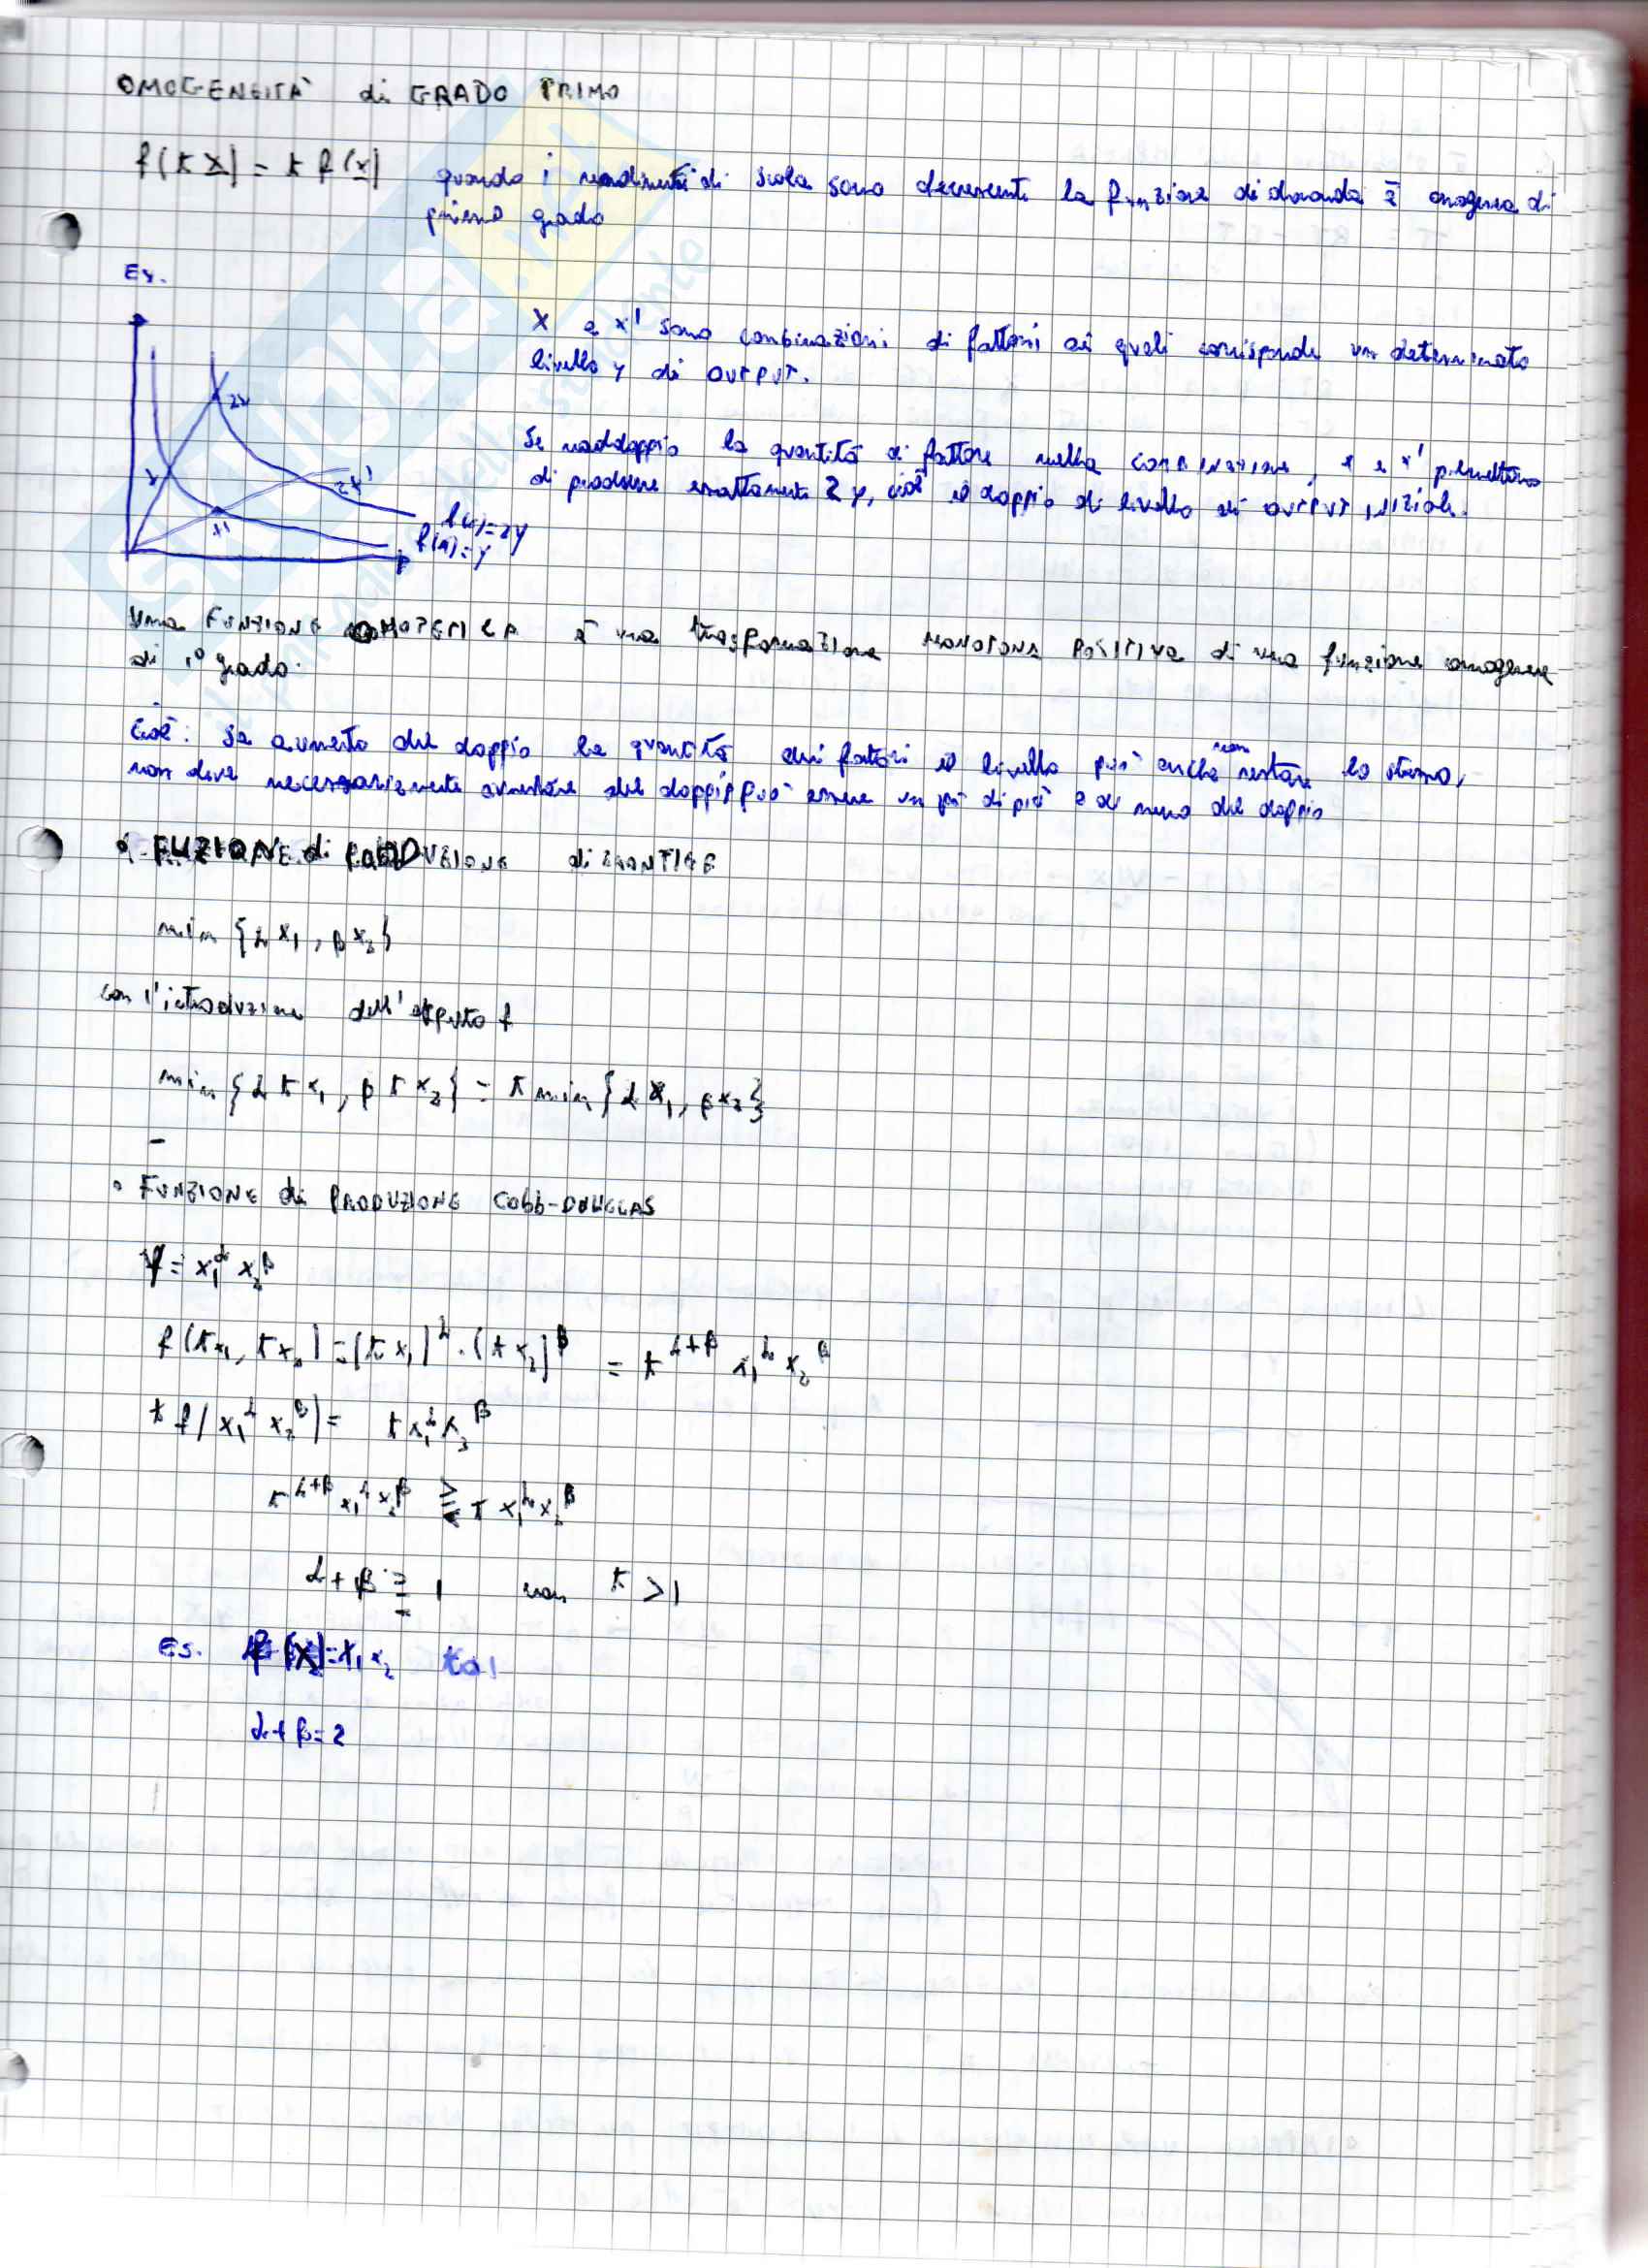 OMOGENEITÀ di GRADO PRIMO
f(t x) = t f(x) quando i rendimenti di scala sono decrescenti la funzione di domanda è omogenea di
primo grado
Es.
X e x' sono combinazioni di fattori ai quali corrisponde un determinato
livello y di OUTPUT.
2x
Se raddoppio la quantità di fattore nella combinazione, x e x' permettono
x
2x'
di produrre esattamente 2y, cioè il doppio di livello di OUTPUT iniziale.
x'
f(x)=2y
f(x)=y
Una FUNZIONE OMOTETICA è una trasformazione MONOTONA POSITIVA di una funzione omogenea
di 1° grado.
Cioè: se aumento del doppio la quantità dei fattori il livello può anche non restare lo stesso,
non deve necessariamente aumentare del doppio può essere un po' di più o di meno del doppio
FUZIONE di PRODUZIONE di LEONTIEF
min {α x₁, β x₂}
con l'introduzione dell' t
min {α t x₁, β t x₂} = t min {α x₁, β x₂}
–
• FUNZIONE di PRODUZIONE Cobb-DOUGLAS
Y = x₁^α x₂^β
f(tx₁, tx₂) = (t x₁)^α · (t x₂)^β = t^α+β x₁^α x₂^β
t f(x₁^α x₂^β) = t x₁^α x₂^β
t^α+β x₁^α x₂^β ⋛ t x₁^α x₂^β
α + β ⋛ 1 t > 1
Es. f(x) = x₁ x₂
α + β = 2